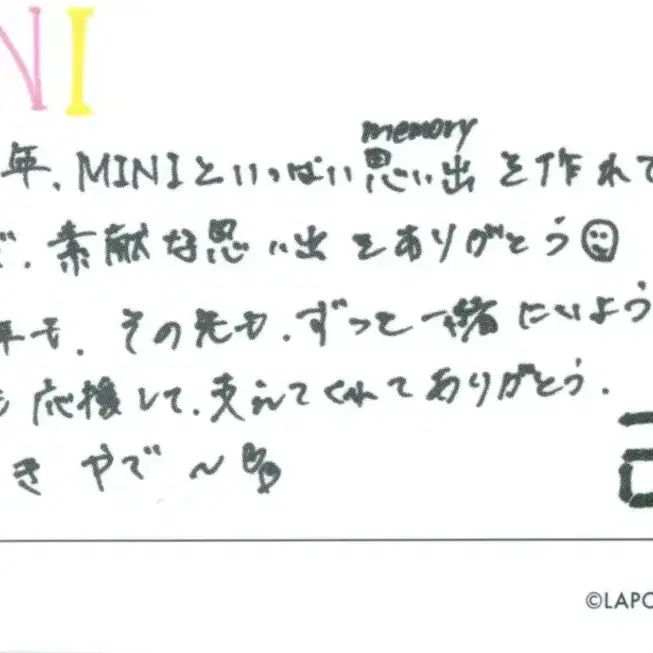 NI
memory
年、MINIといっぱい思い出を作れて
素献な思い出をありがとう
年も、その先も、ずっと一緒にいよう
も応援して、支えてくれてありがとう.
きやで〜
©LAPO